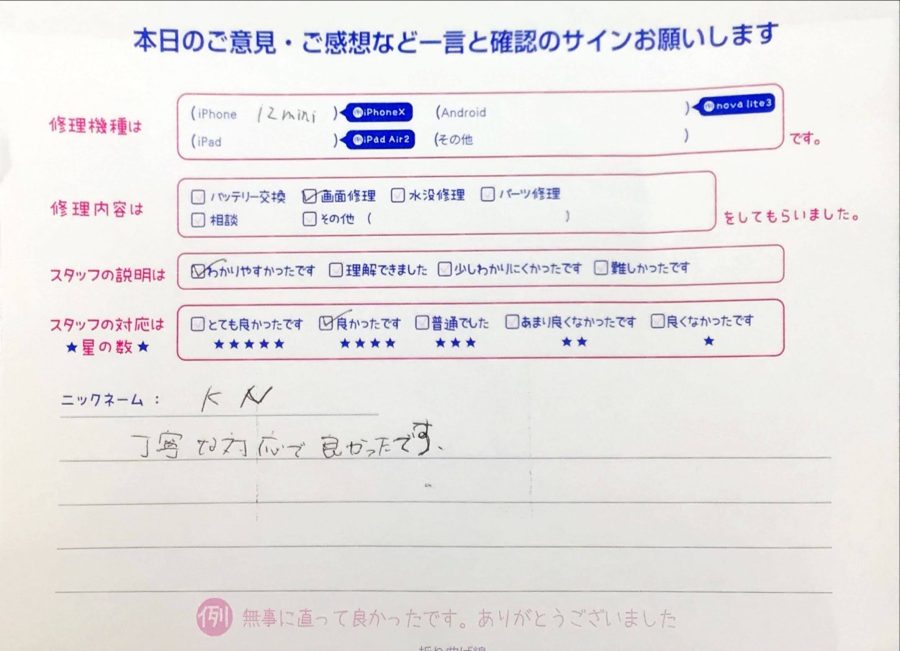 本日のご意見・ご感想など一言と確認のサインお願いします
修理機種は (iPhone 12mini ) iPhoneX (Android ) nova lite3
(iPad ) iPad Air2 (その他 ) です。
修理内容は バッテリー交換 画面修理 水没修理 パーツ修理
相談 その他 ( ) をしてもらいました。
スタッフの説明は わかりやすかったです 理解できました 少しわかりにくかったです 難しかったです
スタッフの対応は とても良かったです 良かったです 普通でした あまり良くなかったです 良くなかったです
★星の数★ ★★★★★ ★★★★ ★★★ ★★ ★
ニックネーム: KN
丁寧な対応で良かったです。
例 無事に直って良かったです。ありがとうございました